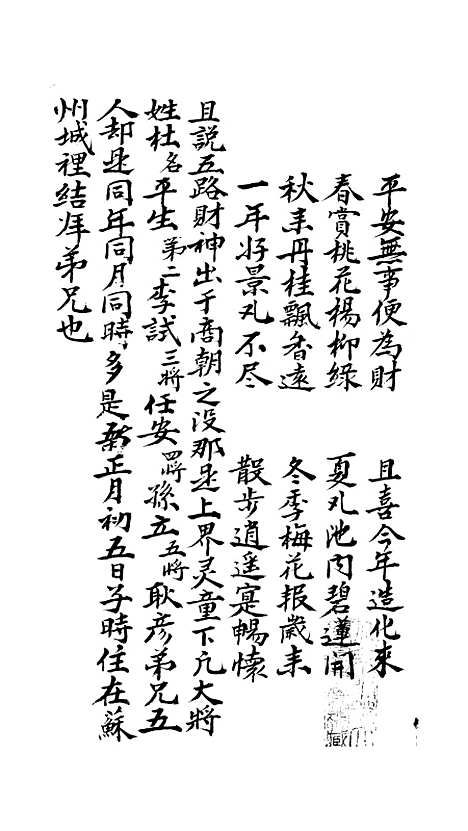 平安無事便為財 且喜今年造化來
春賞桃花楊柳綠 夏凡池內碧蓮開
秋来丹桂飄香遠 冬季梅花報歲来
一年好景凡不尽 散步逍遥寔暢懷
且説五路財神出于商朝之没那是上界灵童下凢大將
姓杜名平生第二李試三將任安四將孫立五將耿彦弟兄五
人却是同年同月同時多是新正月初五日子時住在蘇
州城裡结拜弟兄也